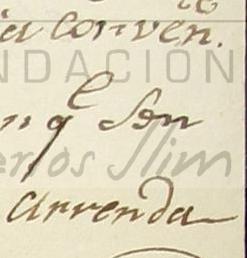 a conven.
NDACIÓN
n q^e son
Carlos Slim
arrenda